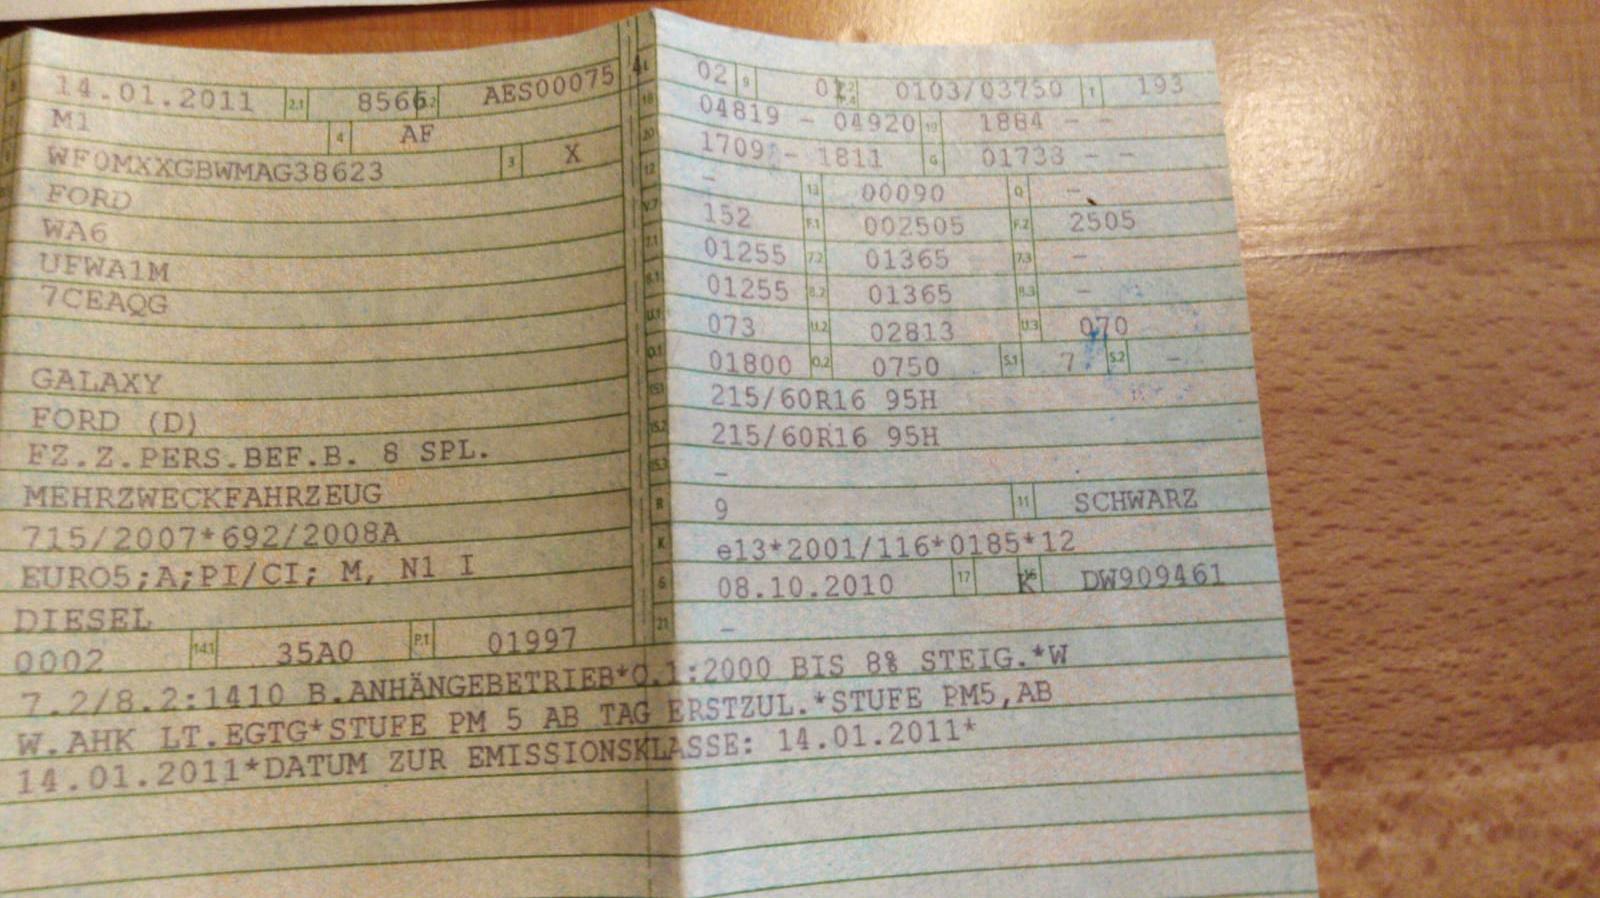 14.01.2011 2.1 8566 2.2 AES00075
M1 4 AF
WF0MXXGBWMAG38623 3 X
FORD
WA6
UFWA1M
7CEAQG
GALAXY
FORD (D)
FZ.Z.PERS.BEF.B. 8 SPL.
MEHRZWECKFAHRZEUG
715/2007*692/2008A
EURO5;A;PI/CI; M, N1 I
DIESEL
0002 14.1 35A0 P.1 01997
L 02 9 01 P.2 P.4 0103/03750 T 193
18 04819 - 04920 19 1884 - -
20 1709 - 1811 G 01733 - -
12 - 13 00090 Q -
V.7 152 F.1 002505 F.2 2505
7.1 01255 7.2 01365 7.3 -
8.1 01255 8.2 01365 8.3 -
U.1 073 U.2 02813 U.3 070
O.1 01800 O.2 0750 S.1 7 S.2 -
15.1 215/60R16 95H
15.2 215/60R16 95H
15.3 -
R 9 11 SCHWARZ
K e13*2001/116*0185*12
6 08.10.2010 17 K 16 DW909461
21 -
7.2/8.2:1410 B.ANHÄNGEBETRIEB*O.1:2000 BIS 8% STEIG.*W
W.AHK LT.EGTG*STUFE PM 5 AB TAG ERSTZUL.*STUFE PM5,AB
14.01.2011*DATUM ZUR EMISSIONSKLASSE: 14.01.2011*